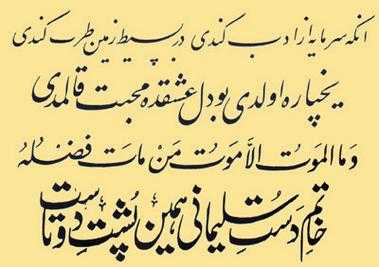 آنکه سرمایه از ادب کندی در بسیط زمین طرب کندی
یخپاره اولدی بو دل عشقده محبت قالمدی
وَمَا الْمَوْتُ اِلَّا مَوْتُ مَنْ مَاتَ فَضْلُهُ
خاتم دست سلیمانی همین پشت دوتاست